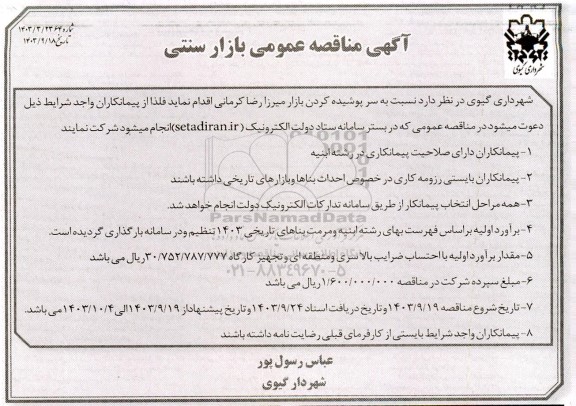 شماره ۱۴۰۳/۳/۲۳۶۴
تاریخ ۱۴۰۳/۹/۱۸
شهرداری گیوی
آگهی مناقصه عمومی بازار سنتی
شهرداری گیوی در نظر دارد نسبت به سر پوشیده کردن بازار میرزا رضا کرمانی اقدام نماید فلذا از پیمانکاران واجد شرایط ذیل
دعوت میشود در مناقصه عمومی که در بستر سامانه ستاد دولت الکترونیک (setadiran.ir) انجام میشود شرکت نمایند
۱- پیمانکاران دارای صلاحیت پیمانکاری در رشته ابنیه
۲- پیمانکاران بایستی رزومه کاری در خصوص احداث بناها وبازارهای تاریخی داشته باشند
۳-همه مراحل انتخاب پیمانکار از طریق سامانه تدارکات الکترونیک دولت انجام خواهد شد.
ParsNamadData
۴- برآورد اولیه براساس فهرست بهای رشته ابنیه ومرمت بناهای تاریخی ۱۴۰۳ تنظیم ودر سامانه بارگذاری گردیده است.
۵-مقدار برآورد اولیه با احتساب ضرایب بالاسری ومنطقه ای و تجهیز کارگاه ۳۰/۷۵۲/۷۸۷/۷۷۷ ریال می باشد
۰۲۱-۸۸۳۴۹۶۷۰-۵
۶-مبلغ سپرده شرکت در مناقصه ۱/۶۰۰/۰۰۰/۰۰۰ ریال می باشد
۷-تاریخ شروع مناقصه ۱۴۰۳/۹/۱۹ وتاریخ دریافت اسناد ۱۴۰۳/۹/۲۴ و تاریخ پیشنهاداز ۱۴۰۳/۹/۱۹ الی ۱۴۰۳/۱۰/۴ می باشد.
۸-پیمانکاران واجد شرایط بایستی از کارفرمای قبلی رضایت نامه داشته باشند
عباس رسول پور
شهردار گیوی